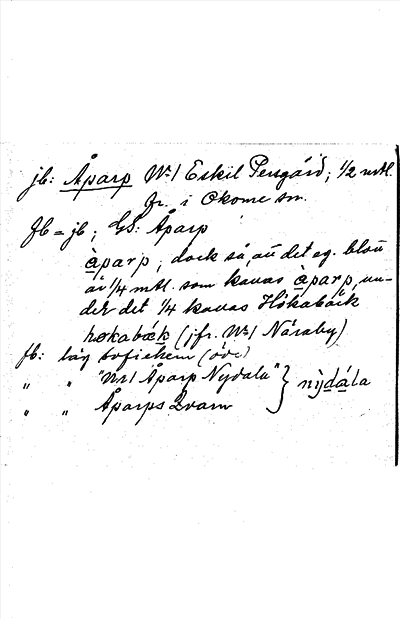 jb: Åparp Nr 1 Eskil Persgård; 1/2 mtl.
fr. i Okome sn.
Jb = jb; GS: Åparp
àparp; dock så, att det eg. blott
är 1/4 mtl. som kavas àparp, un-
der det 1/4 kavas Hökabäck
høkabæk (jfr. Nr 1 Näraby)
fb: läg Sofiehem (öde)
" " "Nr 1 Åparp Nydala" } nỳdála
" " Åparps Qvarn